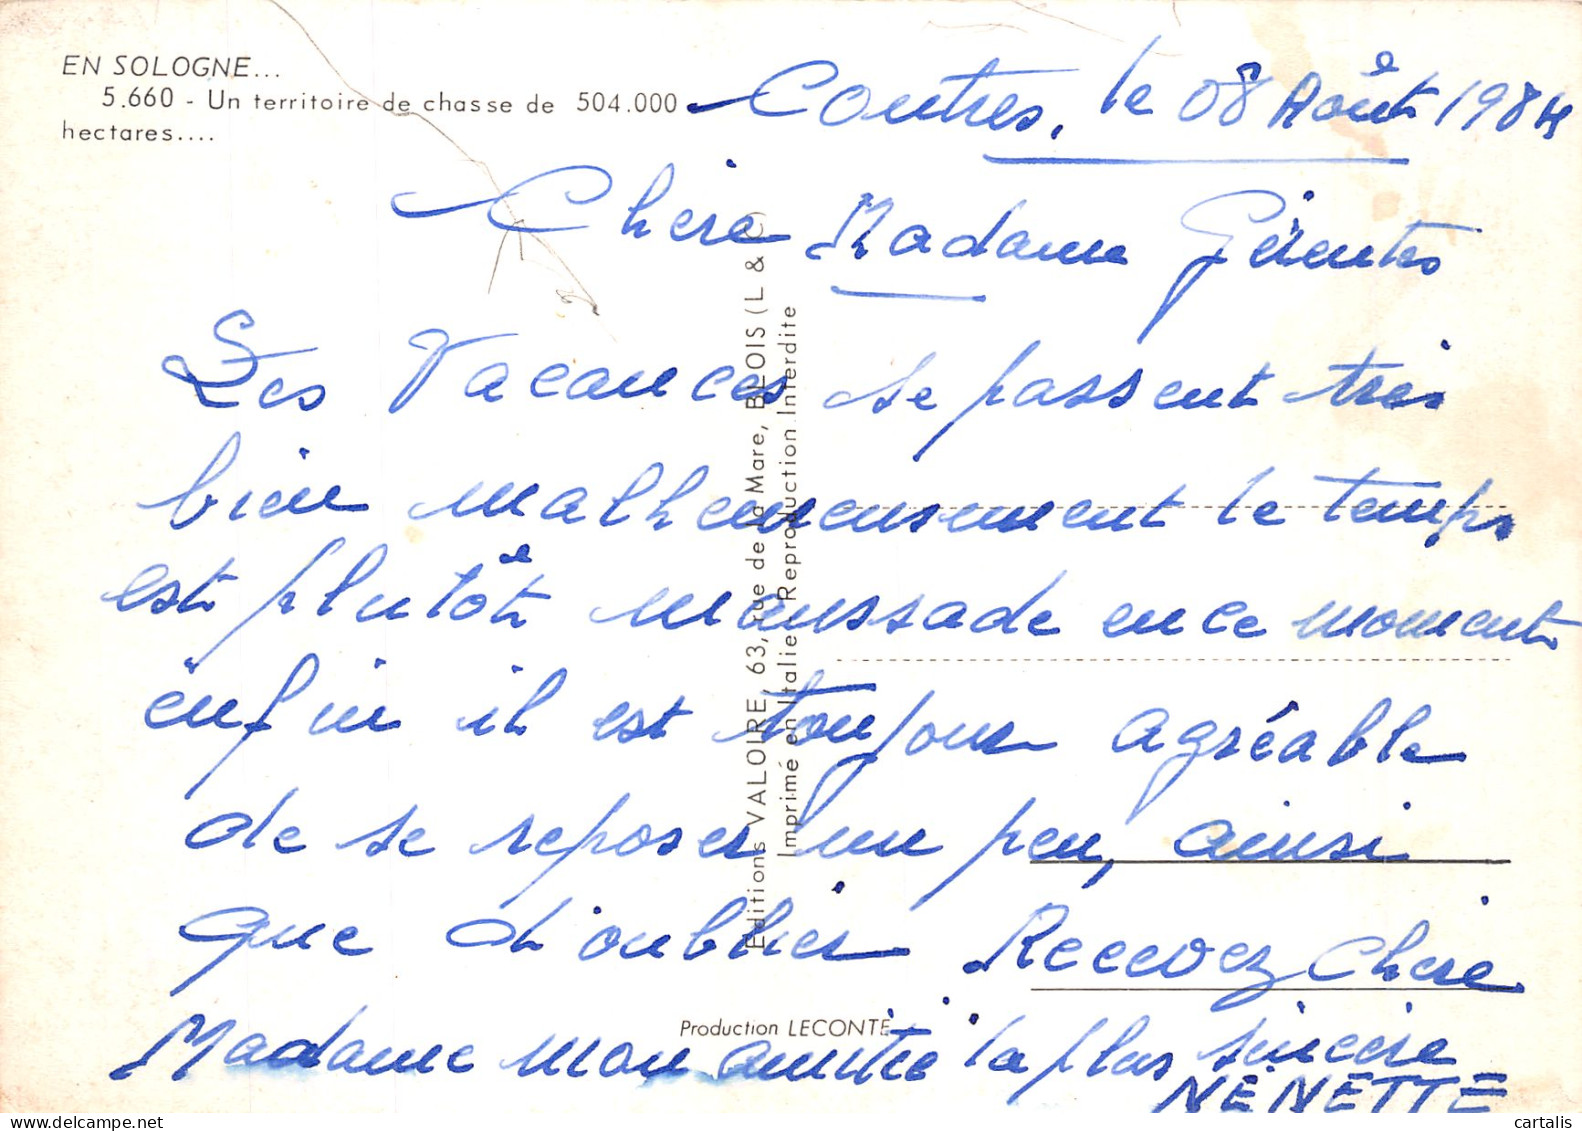 EN SOLOGNE...
5.660 - Un territoire de chasse de 504.000
hectares....
Contres, le 08 Août 1984
Chère Madame Gérentes
Les Vacances se passent très
bien malheureusement le temps
est plutôt maussade en ce moment
enfin il est toujours agréable
de se reposer un peu, ainsi
que d'oublier Recevez Chère
Madame mon amitié la plus sincère
NÉNETTE
Editions VALOIRE, 63, rue de la Mare, BLOIS (L & C)
Imprimé en Italie - Reproduction Interdite
Production LECONTE
cartalis